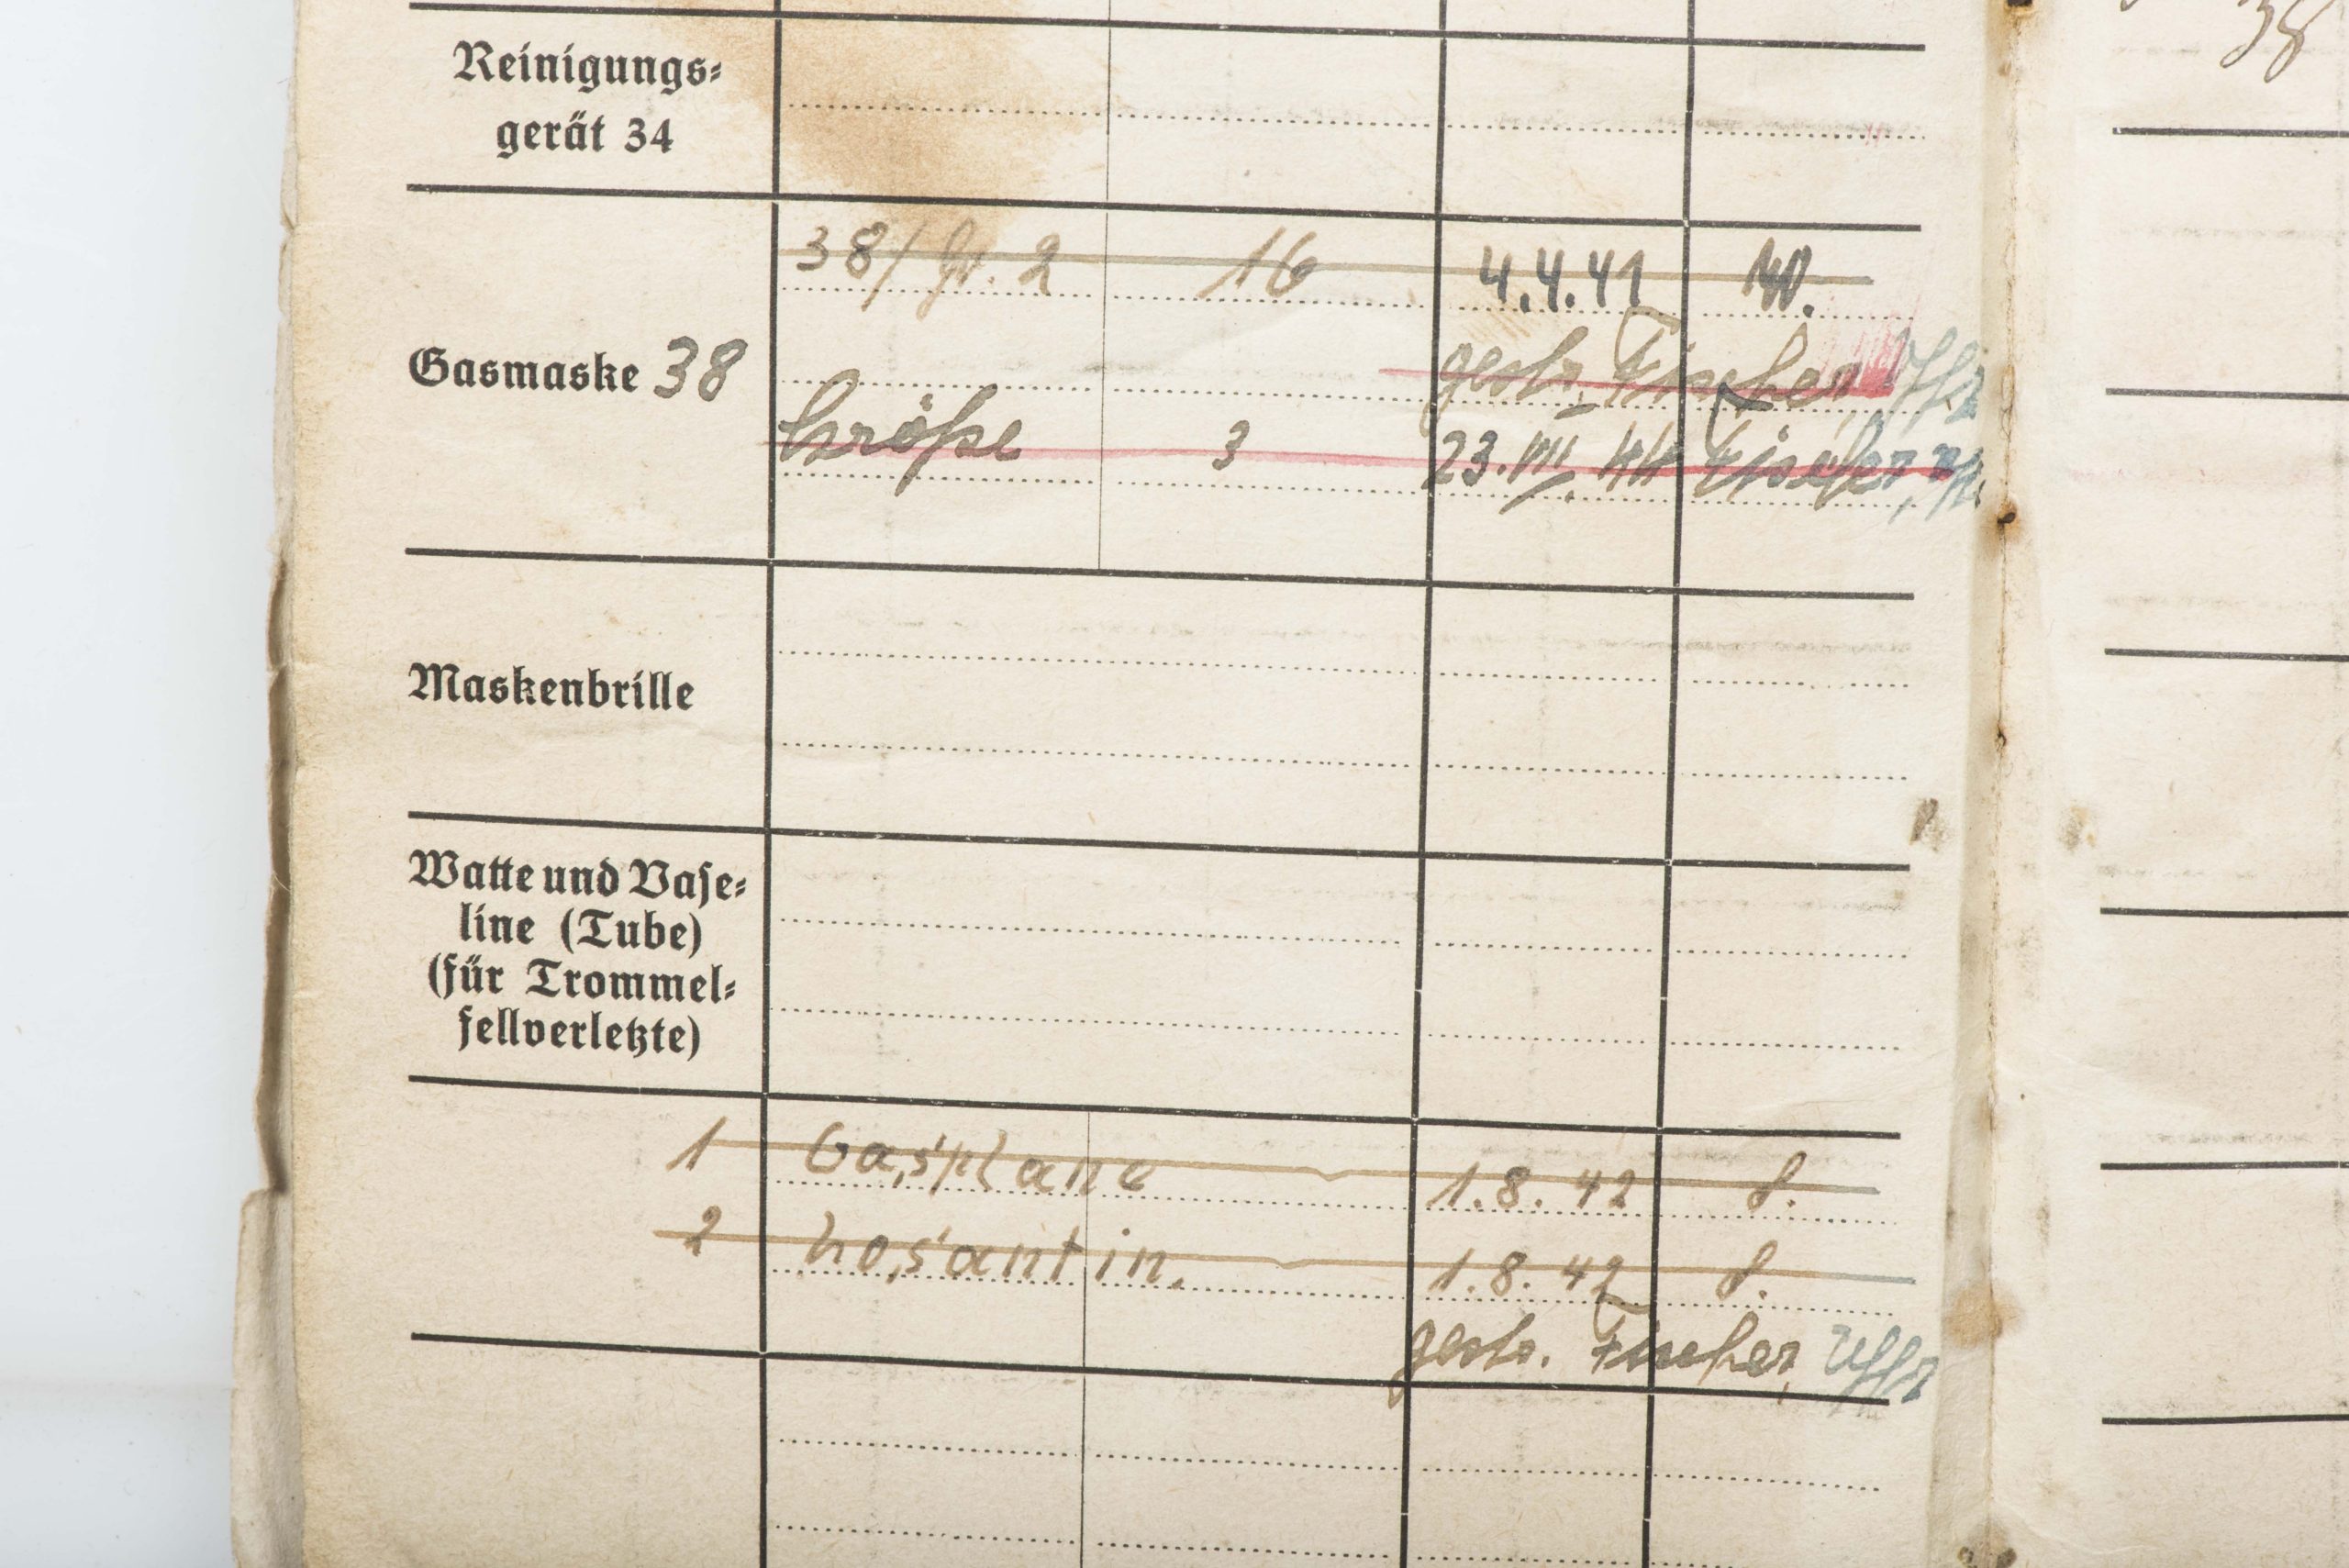 38
Reinigungs-
gerät 34
38/ Gr. 2 16 4.4.41 W.
Gasmaske 38
gestr. Fischer, Uffz
Größe 3 23.VII.44 Fischer, Uffz.
Maskenbrille
Watte und Vase-
line (Tube)
(für Trommel-
fellverletzte)
1 Gasplane 1.8.42 f.
2 Losantin. 1.8.42 f.
gestr. Fischer, Uffz